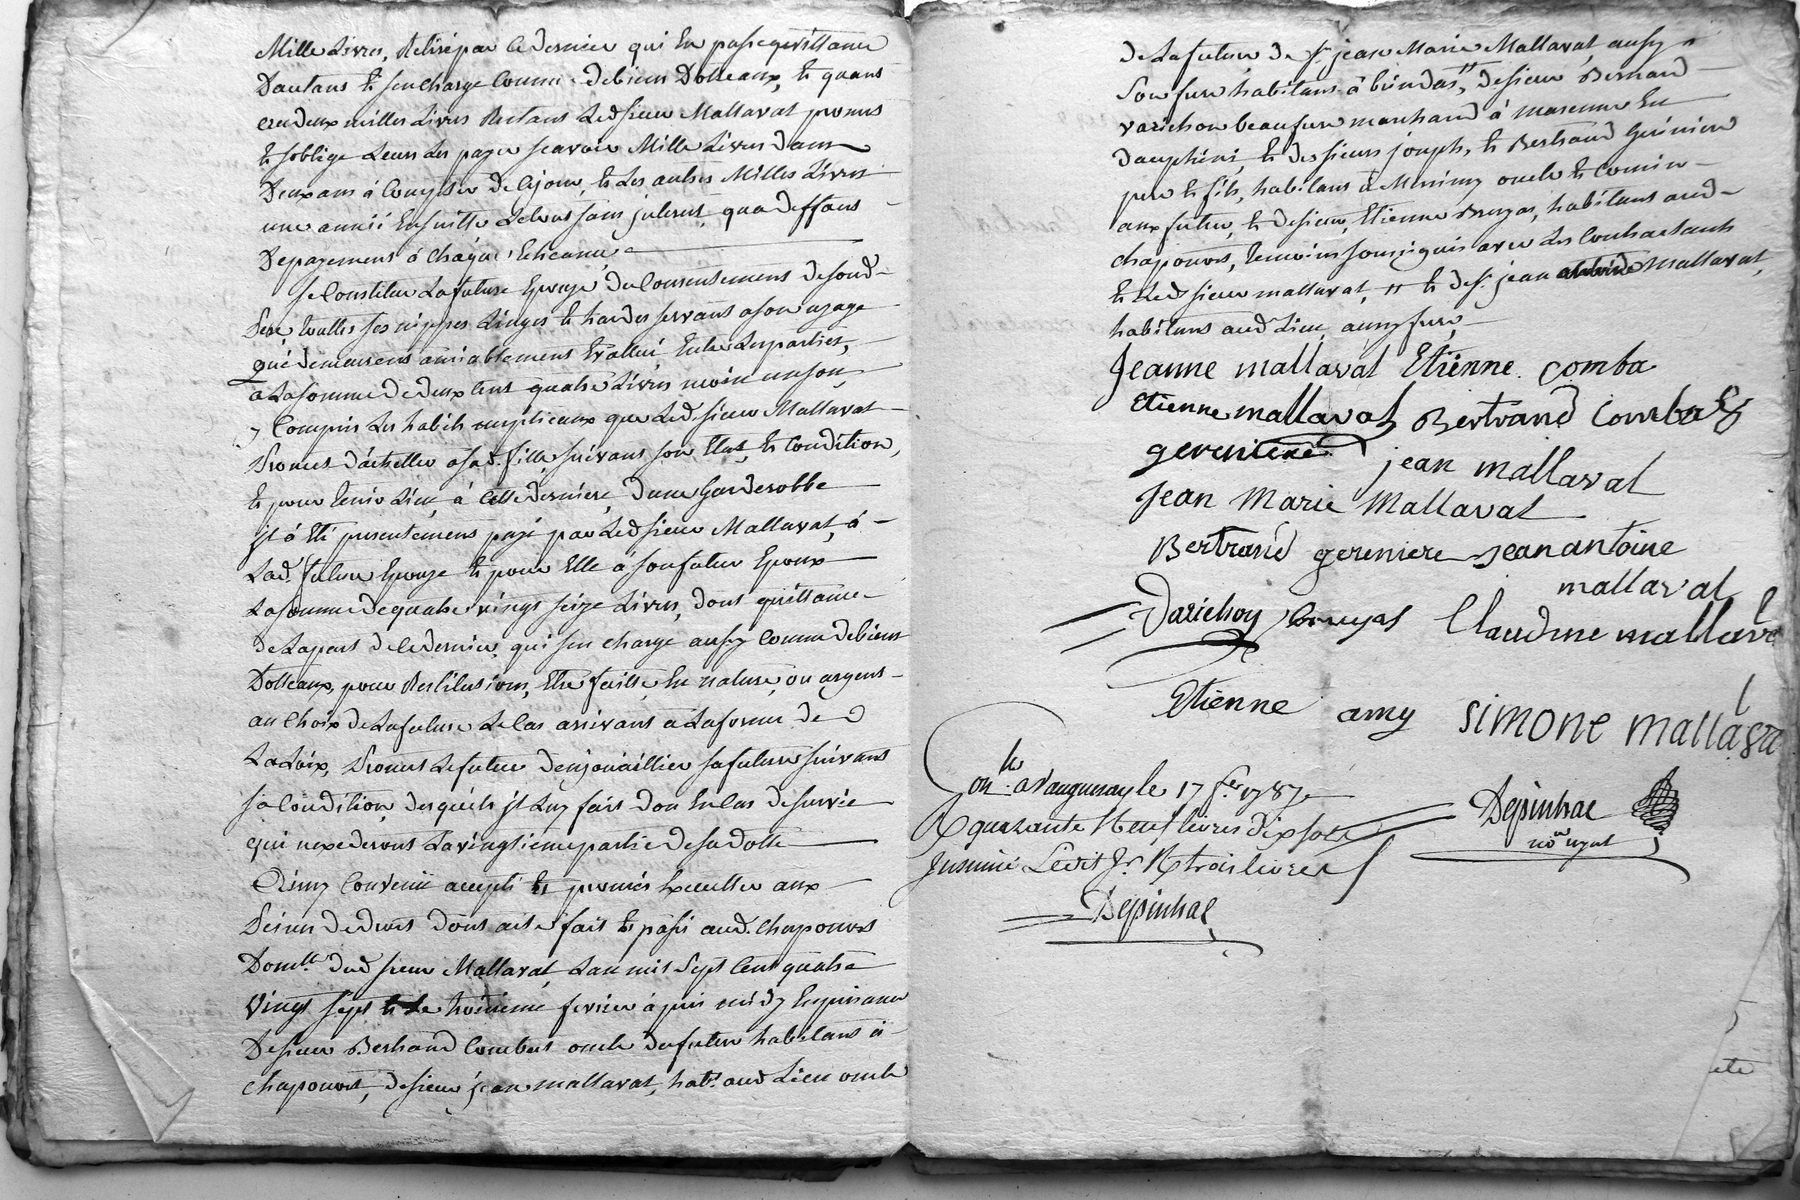 Mille Livres, Retiré par ce dernier qui En passe quittance
D'autans & s'en charge comme de biens Dotteaux, & quans
aux deux milles Livres Restans Led sieur Mallaval promet
& s'oblige Leurs Les payer scavoir Mille Livres dans
Deux ans à Compter de ce jour, & Les autres Milles Livres
une année Ensuitte Le tous sans jnterest, qua deffaus
Depayement à chaque Echeance
Se Constitue La future Epouze du Consentement desond
Pere, touttes ses nippes Linges & hardes servans a son uzage
qui demeurens amiablement Evallué Entre Les parties,
a La somme de deux Cent quatre Livres moin un sou
y Compris Les habits nuptieaux que Led sieur Mallaval
Promet d'achetter a sad. fille suivans son Etat & Condition,
& pour tenir Lieu à Cette derniere d'une Garderobbe
jl à Eté presentemens payé par Led sieur Mallaval à
Lad. future Epouze & pour Elle à son futur Epoux
La somme de quatre vingt seize Livres, dont quittance
de La part de ce dernier, qui s'en charge aussy Comme de biens
Dotteaux, pour Restitutions Etre faitte En nature, ou argens
au Choix de La future Le Cas arrivans a La forme de
La Loix, Promet Le futur d'enjouaillier sa future suivans
sa Condition desquels jl Luy fait don En Cas de survie
qui nexederons La vingtieme partie de sa dotte
Ainsy Convenü accepté & promis Executter aux
Peines de droit dont acte fait & passé aud. Chaponost
Domlle dud sieur Mallaval, L'an mil sept Cent quatre
vingt sept & Le troisieme fevrier à près midy En presance
De sieur Bertrand Combet oncle du futur habitans à
Chaponost, de sieur jean mallaval, habt aud Lieu oncle
de La future, de sr jean Marie Mallaval aussy
Son frere habitans à brindas, " de sieur Bernard
varichon beaufrere marchand à marenne En
dauphiné, & des sieurs joseph, & Bertrand Gerinier
pere & fils, habitans à Messimy oncle & Cousin
aux futur, & de sieur Etienne Bouzas, habitans aud
chaponost, temoins soussignés avec Les Contractants
& Led sieur mallaval, " & de sr jean antoine mallaval,
habitans aud Lieu aussy frere
Jeanne mallaval Etienne comba
etienne mallaval Bertrand Combet
gereniere jean mallaval
Jean Marie Mallaval
Bertrand gereniere jean antoine
mallaval
Varichon Claudine mallaval
Etienne amy Simone mallaval
Conlle a Vaugneray le 17 fer 1787
R quarante Neuf livres dix sols
Jnsinué Ledit Jr R trois livres
Depinhac
Depinhac
nore royal